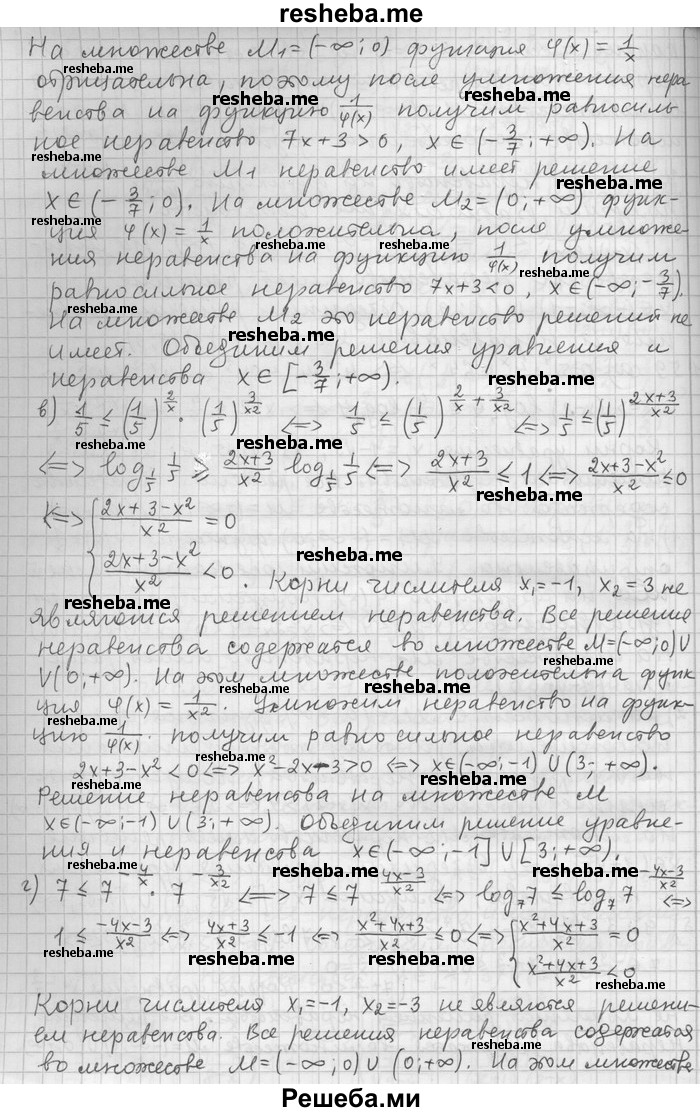 resheba.me
На множестве M₁=(-∞;0) функция φ(x)=1/x
отрицательна, поэтому после умножения нера-
венства на функцию 1/φ(x) получим равносиль-
ное неравенство 7x+3>0, x∈(-3/7;+∞). На
множестве M₁ неравенство имеет решение
x∈(-3/7;0). На множестве M₂=(0;+∞) функ-
ция φ(x)=1/x положительна, после умноже-
ния неравенства на функцию 1/φ(x) получим
равносильное неравенство 7x+3<0, x∈(-∞;-3/7).
На множестве M₂ это неравенство решений не
имеет. Объединим решения уравнения и
неравенства x∈[-3/7;+∞).
в) 1/5 ≤ (1/5)^(2/x) · (1/5)^(3/x2) <=> 1/5 ≤ (1/5)^(2/x + 3/x2) <=> 1/5 ≤ (1/5)^((2x+3)/x²)
<=> log_(1/5) 1/5 ≥ (2x+3)/x² log_(1/5) 1/5 <=> (2x+3)/x² ≤ 1 <=> (2x+3-x²)/x² ≤ 0
<=> { (2x+3-x²)/x² = 0
(2x+3-x²)/x² < 0. Корни числителя x₁=-1, x₂=3 не
являются решением неравенства. Все решения
неравенства содержатся во множестве M=(-∞;0)∪
∪(0;+∞). На этом множестве положительна функ-
ция φ(x)=1/x². Умножим неравенство на функ-
цию 1/φ(x). получим равносильное неравенство
2x+3-x²<0 <=> x²-2x-3>0 <=> x∈(-∞;-1)∪(3;+∞).
Решение неравенства на множестве M
x∈(-∞;-1)∪(3;+∞). Объединим решение уравне-
ния и неравенства x∈(-∞;-1]∪[3;+∞).
г) 7 ≤ 7^(-4/x) · 7^(-3/x2) <=> 7 ≤ 7^((4x-3)/x²) <=> log₇7 ≤ log₇7^((-4x-3)/x²) <=>
1 ≤ (-4x-3)/x² <=> (4x+3)/x² ≤ -1 <=> (x²+4x+3)/x² ≤ 0 <=> { (x²+4x+3)/x² = 0
(x²+4x+3)/x² < 0
Корни числителя x₁=-1, x₂=-3 не являются решени-
ем неравенства. Все решения неравенства содержатся
во множестве M=(-∞;0)∪(0;+∞). На этом множестве
Решеба.ми